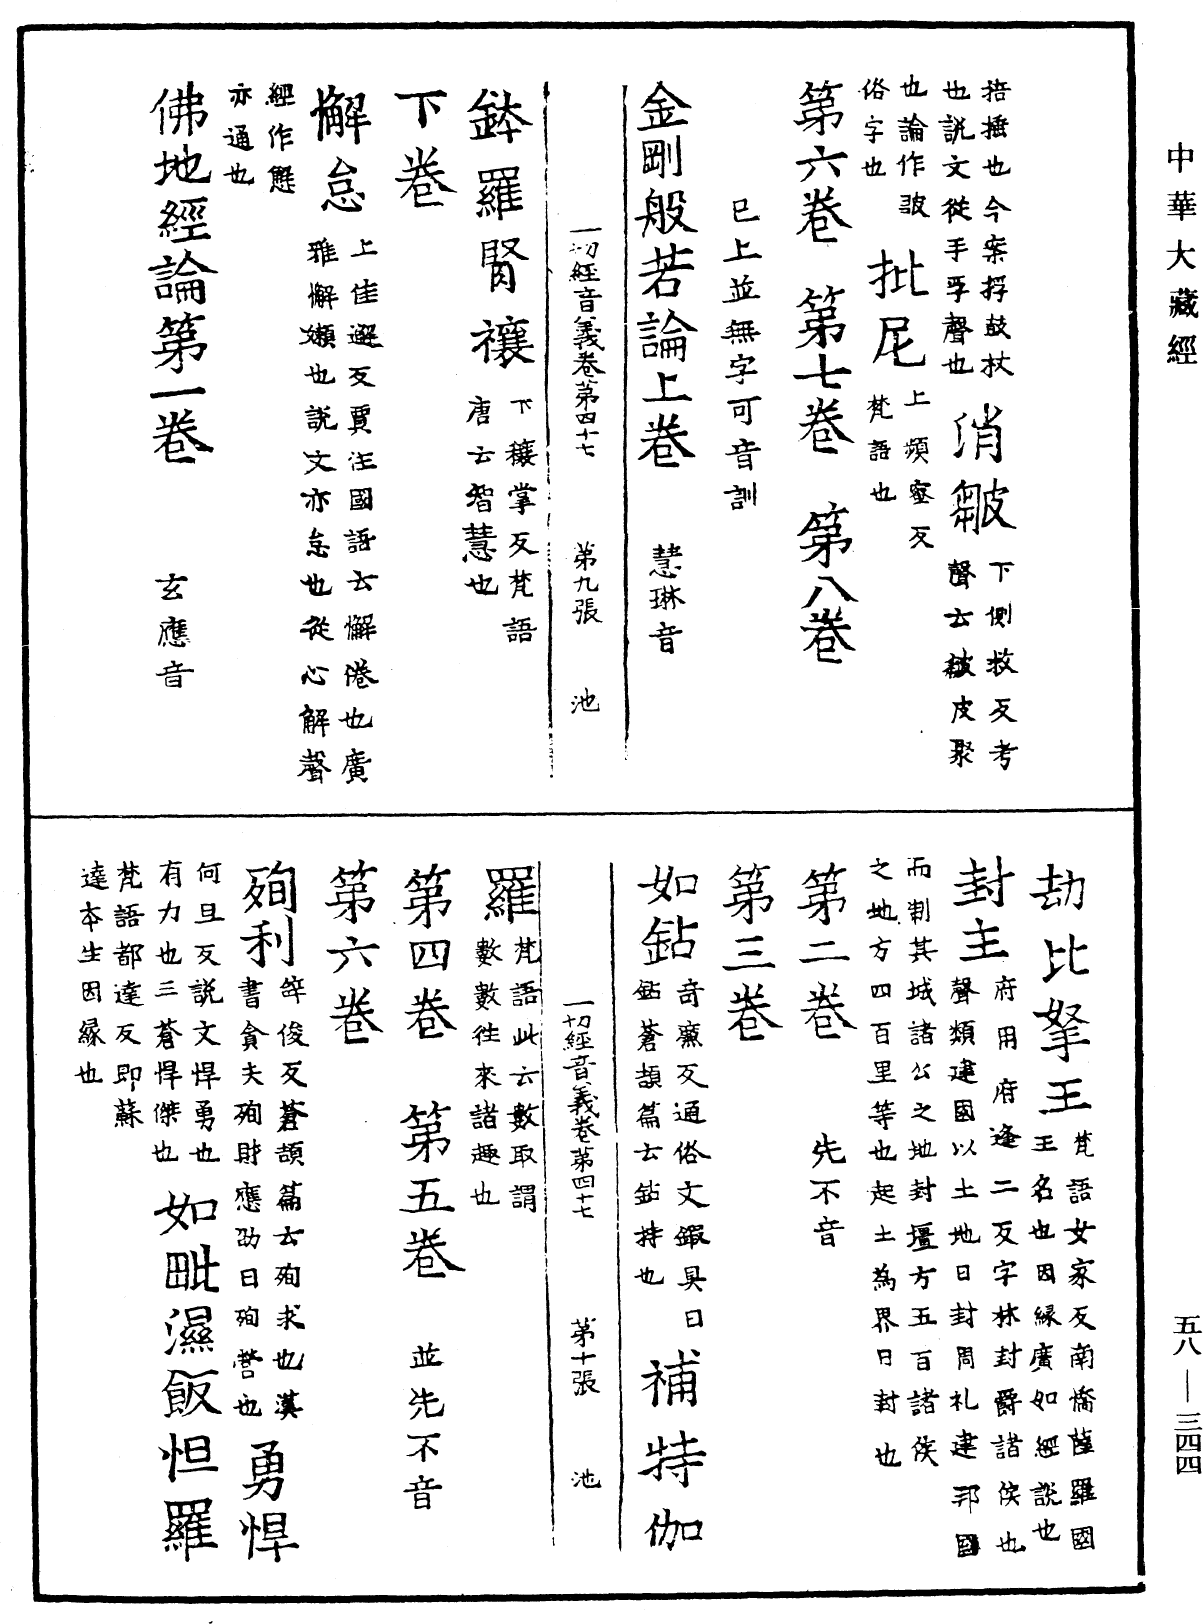 中華大藏經
捂摏也今案捊鼓杖
也說文從手孚聲也
消皺
下側救反考
聲云皺皮聚
也論作詖
俗字也
批尼
上頻蜜反
梵語也
第六卷 第七卷 第八卷
已上並無字可音訓
金剛般若論上卷 慧琳音
一切經音義卷第四十七 第九張 池
鉢羅腎禳
下穰掌反梵語
唐云智慧也
下卷
懈怠
上佳避反賈注國語云懈倦也廣
雅懈嬾也說文亦怠也從心解聲
經作懈
亦通也
佛地經論第一卷 玄應音
劫比拏王
梵語女家反南憍薩羅國
王名也因緣廣如經說也
封主
府用府逢二反字林封爵諸侯也
聲類建國以土地日封周礼建邦國
而制其城諸公之地封壃方五百諸侯
之地方四百里等也起土為界日封也
第二卷 先不音
第三卷
如鉆
奇廉反通俗文鍜具日
鉆蒼頡篇云鉆持也
補特伽
一切經音義卷第四十七 第十張 池
羅
梵語此云數取謂
數數徃來諸趣也
第四卷 第五卷 並先不音
第六卷
殉利
辝俊反蒼頡篇云殉求也漢
書貪夫殉財應劭日殉營也
勇悍
何旦反說文悍勇也
有力也三蒼悍傑也
如毗濕飯怛羅
梵語都達反即蘇
達本生因緣也
五八—三四四